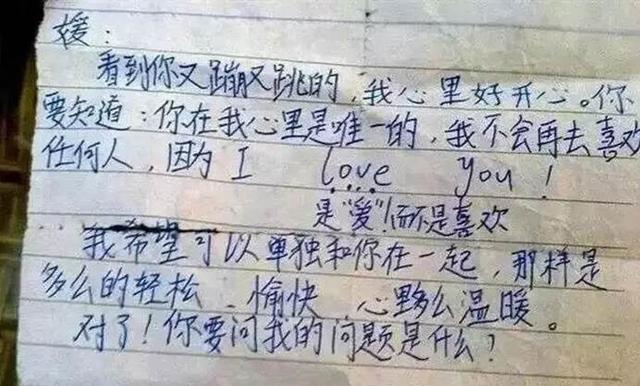 媛：
看到你又蹦又跳的，我心里好开心。你
要知道：你在我心里是唯一的，我不会再去喜欢
任何人，因为I love you！
是“爱”！而不是喜欢
我希望可以单独和你在一起，那样是
多么的轻松、愉快 心里多么温暖。
对了！你要问我的问题是什么？